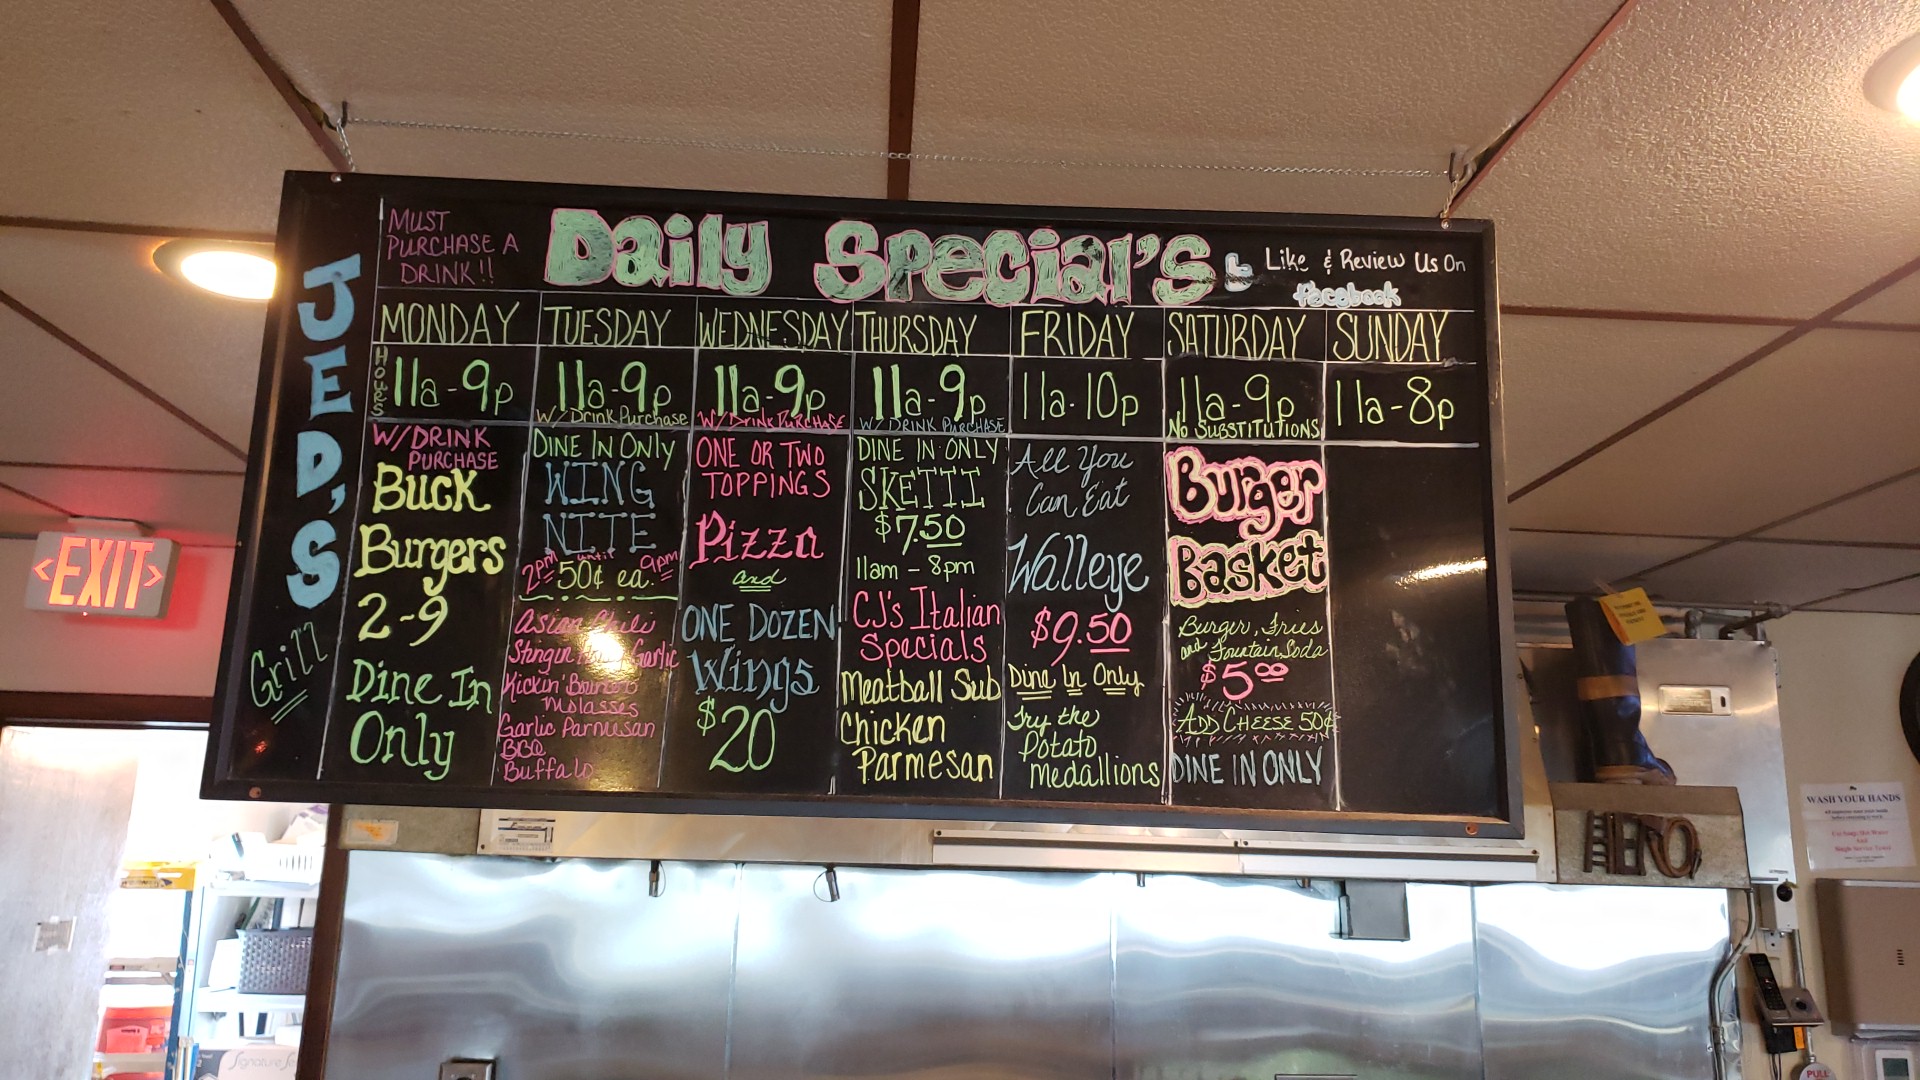 MUST
PURCHASE A
DRINK!!
Daily Special's
Like & Review Us On
facebook
JED'S
Grill
MONDAY
TUESDAY
WEDNESDAY
THURSDAY
FRIDAY
SATURDAY
SUNDAY
HOURS
11a-9p
11a-9p
W/Drink Purchase
11a-9p
W/DRINK PURCHASE
11a-9p
W/ DRINK PURCHASE
11a-10p
11a-9p
No SUBSTITUTIONS
11a-8p
W/DRINK
PURCHASE
Buck
Burgers
2-9
Dine In
Only
DINE IN ONLY
WING
NITE
2pm until 9pm
50¢ ea.
Asian Chili
Stingin Honey Garlic
Kickin' Bourbon
Molasses
Garlic Parmesan
BBQ
Buffalo
ONE OR TWO
TOPPINGS
Pizza
and
ONE DOZEN
Wings
$20
DINE IN ONLY
SKETTI
$7.50
11am - 8pm
CJ's Italian
Specials
Meatball Sub
Chicken
Parmesan
All You
Can Eat
Walleye
$9.50
Dine In Only
Try the
Potato
Medallions
Burger
Basket
Burger, Fries
and Fountain Soda
$5.00
ADD CHEESE 50¢
DINE IN ONLY
EXIT
HERO
WASH YOUR HANDS
Signature Se
PULL